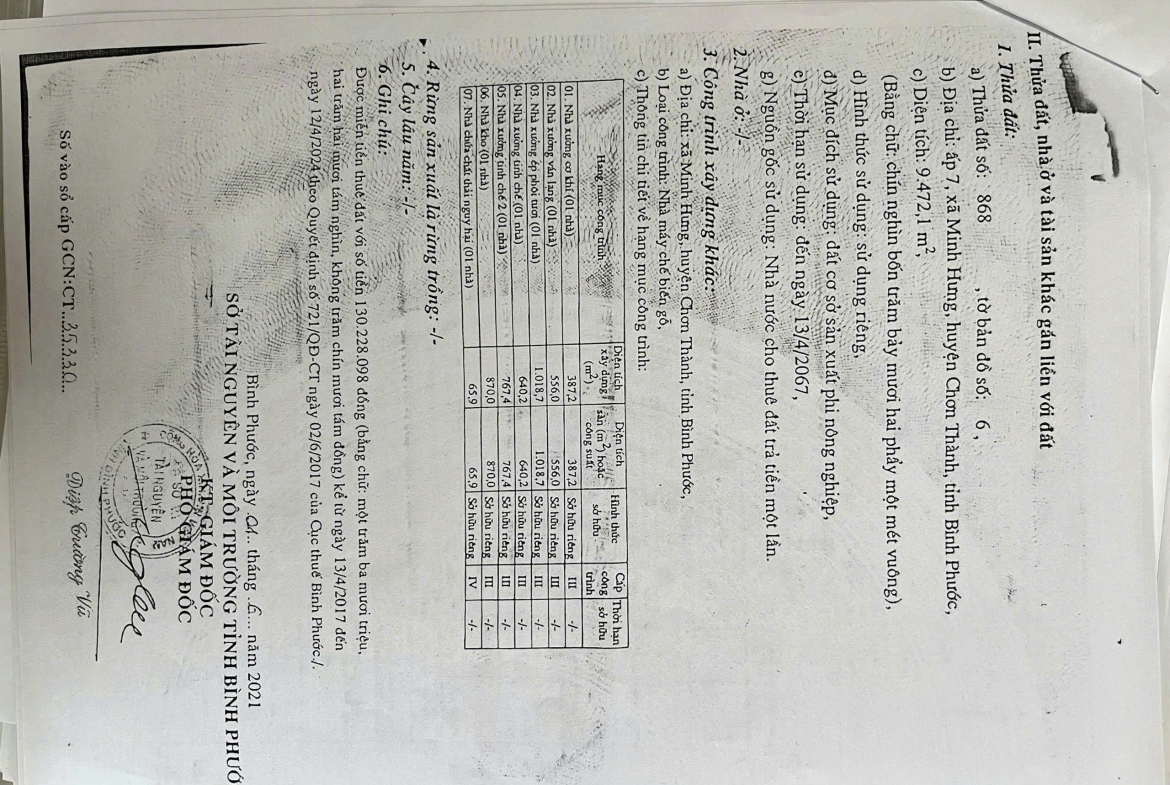 II. Thửa đất, nhà ở và tài sản khác gắn liền với đất
1. Thửa đất:
a) Thửa đất số: 868 , tờ bản đồ số: 6 ,
b) Địa chỉ: ấp 7, xã Minh Hưng, huyện Chơn Thành, tỉnh Bình Phước,
c) Diện tích: 9.472,1 m²,
(Bằng chữ: chín nghìn bốn trăm bảy mươi hai phẩy một mét vuông),
d) Hình thức sử dụng: sử dụng riêng,
đ) Mục đích sử dụng: đất cơ sở sản xuất phi nông nghiệp,
e) Thời hạn sử dụng: đến ngày 13/4/2067,
g) Nguồn gốc sử dụng: Nhà nước cho thuê đất trả tiền một lần.
2. Nhà ở: -/-
3. Công trình xây dựng khác:
a) Địa chỉ: xã Minh Hưng, huyện Chơn Thành, tỉnh Bình Phước,
b) Loại công trình: Nhà máy chế biến gỗ,
c) Thông tin chi tiết về hạng mục công trình:
Hạng mục công trình | Diện tích xây dựng (m²) | Diện tích sàn (m²) hoặc công suất | Hình thức sở hữu | Cấp công trình | Thời hạn sở hữu
01. Nhà xưởng cơ khí (01 nhà) | 387,2 | 387,2 | Sở hữu riêng | III | -/-
02. Nhà xưởng ván lạng (01 nhà) | 556,0 | 556,0 | Sở hữu riêng | III | -/-
03. Nhà xưởng ép phôi tươi (01 nhà) | 1.018,7 | 1.018,7 | Sở hữu riêng | III | -/-
04. Nhà xưởng tinh chế (01 nhà) | 640,2 | 640,2 | Sở hữu riêng | III | -/-
05. Nhà xưởng tinh chế 2 (01 nhà) | 767,4 | 767,4 | Sở hữu riêng | III | -/-
06. Nhà kho (01 nhà) | 870,0 | 870,0 | Sở hữu riêng | III | -/-
07. Nhà chứa chất thải nguy hại (01 nhà) | 65,9 | 65,9 | Sở hữu riêng | IV | -/-
4. Rừng sản xuất là rừng trồng: -/-
5. Cây lâu năm: -/-
6. Ghi chú:
Được miễn tiền thuê đất với số tiền 130.228.098 đồng (bằng chữ: một trăm ba mươi triệu,
hai trăm hai mươi tám nghìn, không trăm chín mươi tám đồng) kể từ ngày 13/4/2017 đến
ngày 12/4/2024 theo Quyết định số 721/QĐ-CT ngày 02/6/2017 của Cục thuế Bình Phước./.
Bình Phước, ngày 01.. tháng .6.... năm 2021
SỞ TÀI NGUYÊN VÀ MÔI TRƯỜNG TỈNH BÌNH PHƯỚ
KT. GIÁM ĐỐC
PHÓ GIÁM ĐỐC
SỞ
TÀI NGUYÊN
VÀ MÔI TRƯỜNG
Diệp Trường Vũ
Số vào sổ cấp GCN:CT...35330...